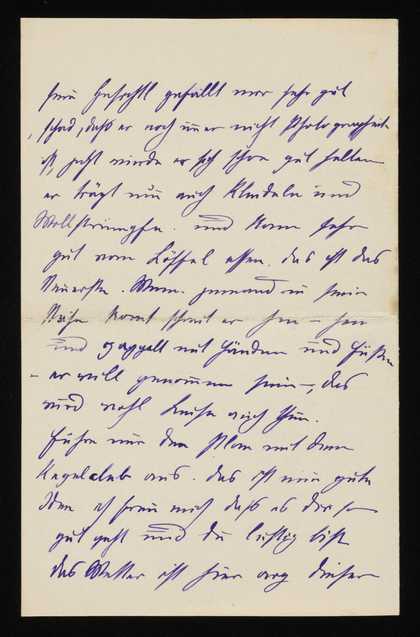 sein Gesichtl gefällt mir sehr gut
schad, daß er noch immer nicht Photographirt
ist, jetzt würde er sich schon gut halten
er trägt nun auch Kleideln und
Wollstrümpfe. und kann sehr
gut vom Löffel essen. das ist das
Neueste. Wenn jemand in sein
Nähe komt schreit er hm – hm
und zappelt mit Händen und Füßen
er will genommen sein –, das
wird wohl Luise auch thun.
Führe nur den Plan mit dem
Kegelclub aus. das ist eine gute
Idee ich freu mich daß es dir so
gut geht und du lustig bist
das Wetter ist hier arg dieser